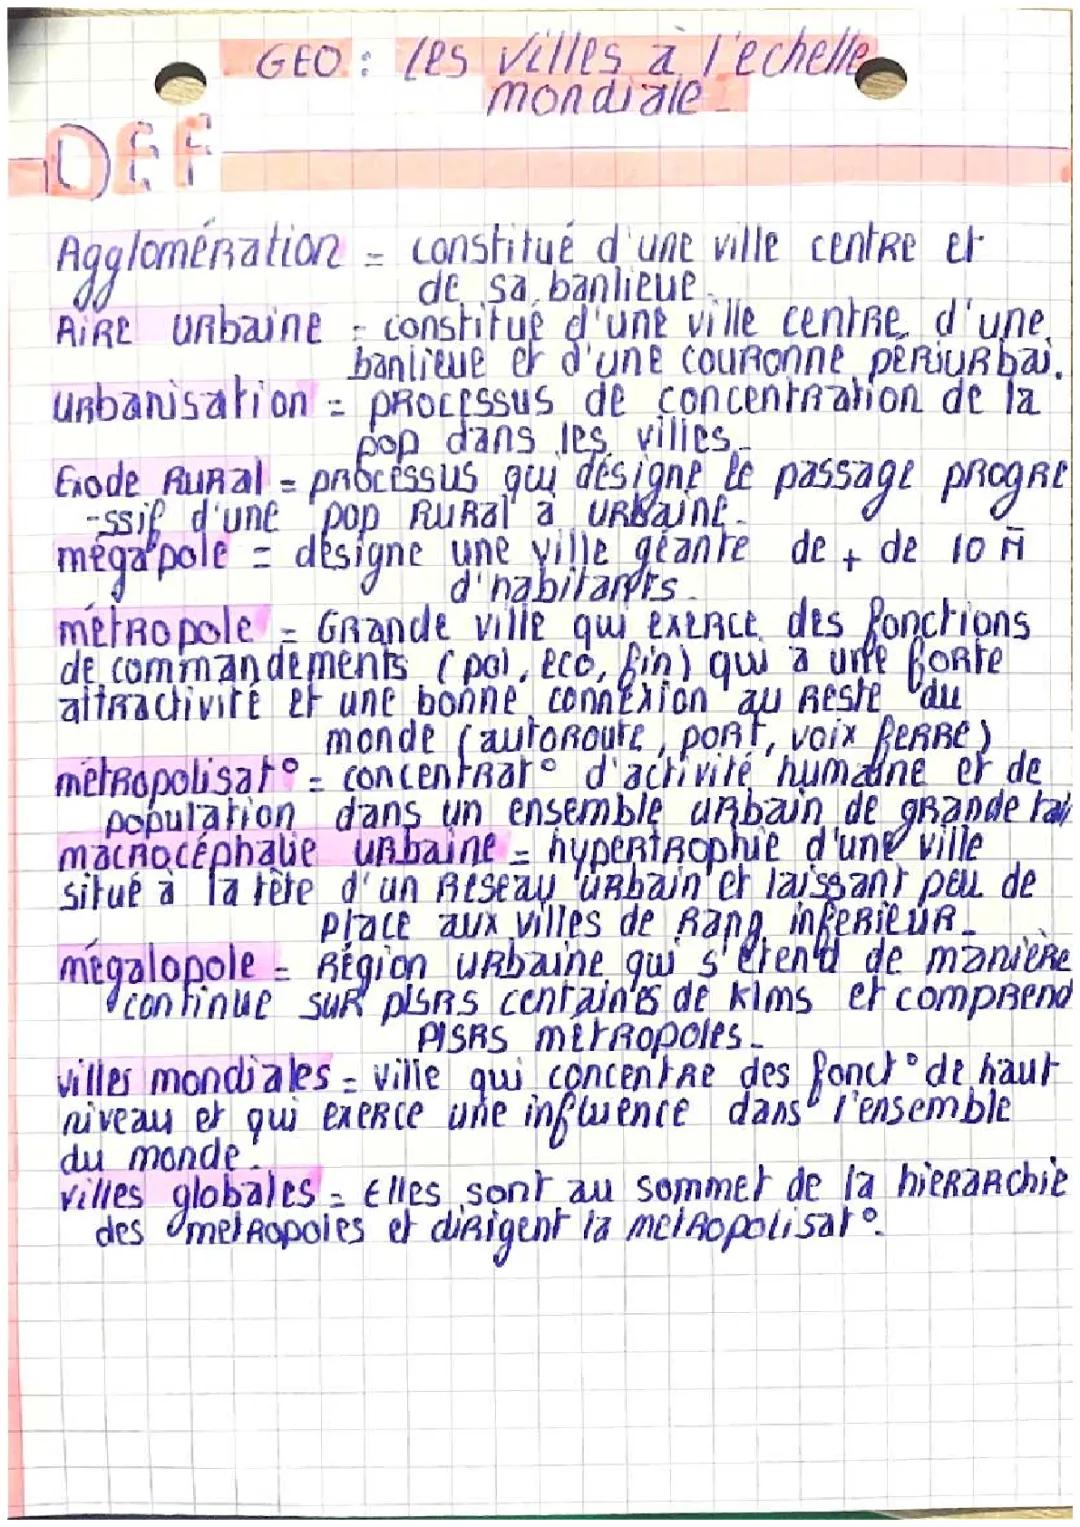 GEO : les villes à l'echelle
mondiale
DEF
Agglomération = constitué d'une ville centre et
de sa banlieue.
Aire urbaine = constitué d'une ville centre, d'une
banlieue et d'une couronne périurbai.
urbanisation = processus de concentration de la
pop dans les villes.
Exode Rural = processus qui désigne le passage progre
-ssif d'une pop rural à urbaine.
mégapole = désigne une ville géante de + de 10 M
d'habitants.
métropole = Grande ville qui exerce des fonctions
de commandements (pol, eco, fin) qui a une forte
attractivité et une bonne connexion au reste du
monde (autoroute, port, voix ferré)
métropolisat° = concentrat° d'activité humaine et de
population dans un ensemble urbain de grande tai
macrocéphalie urbaine = hypertrophie d'une ville
situé à la tête d'un reseau urbain et laissant peu de
place aux villes de rang inferieur.
mégalopole = Région urbaine qui s'étend de manière
continue sur plsrs centaines de klms et comprend
plsrs métropoles.
villes mondiales = ville qui concentre des fonct° de haut
niveau et qui exerce une influence dans l'ensemble
du monde.
villes globales = Elles sont au sommet de la hierarchie
des métropoles et dirigent la métropolisat°.